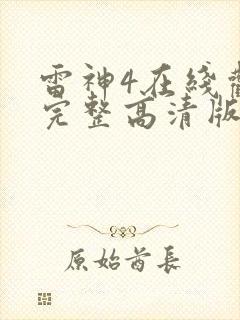 雷神4在线
完整高清版
原始首长